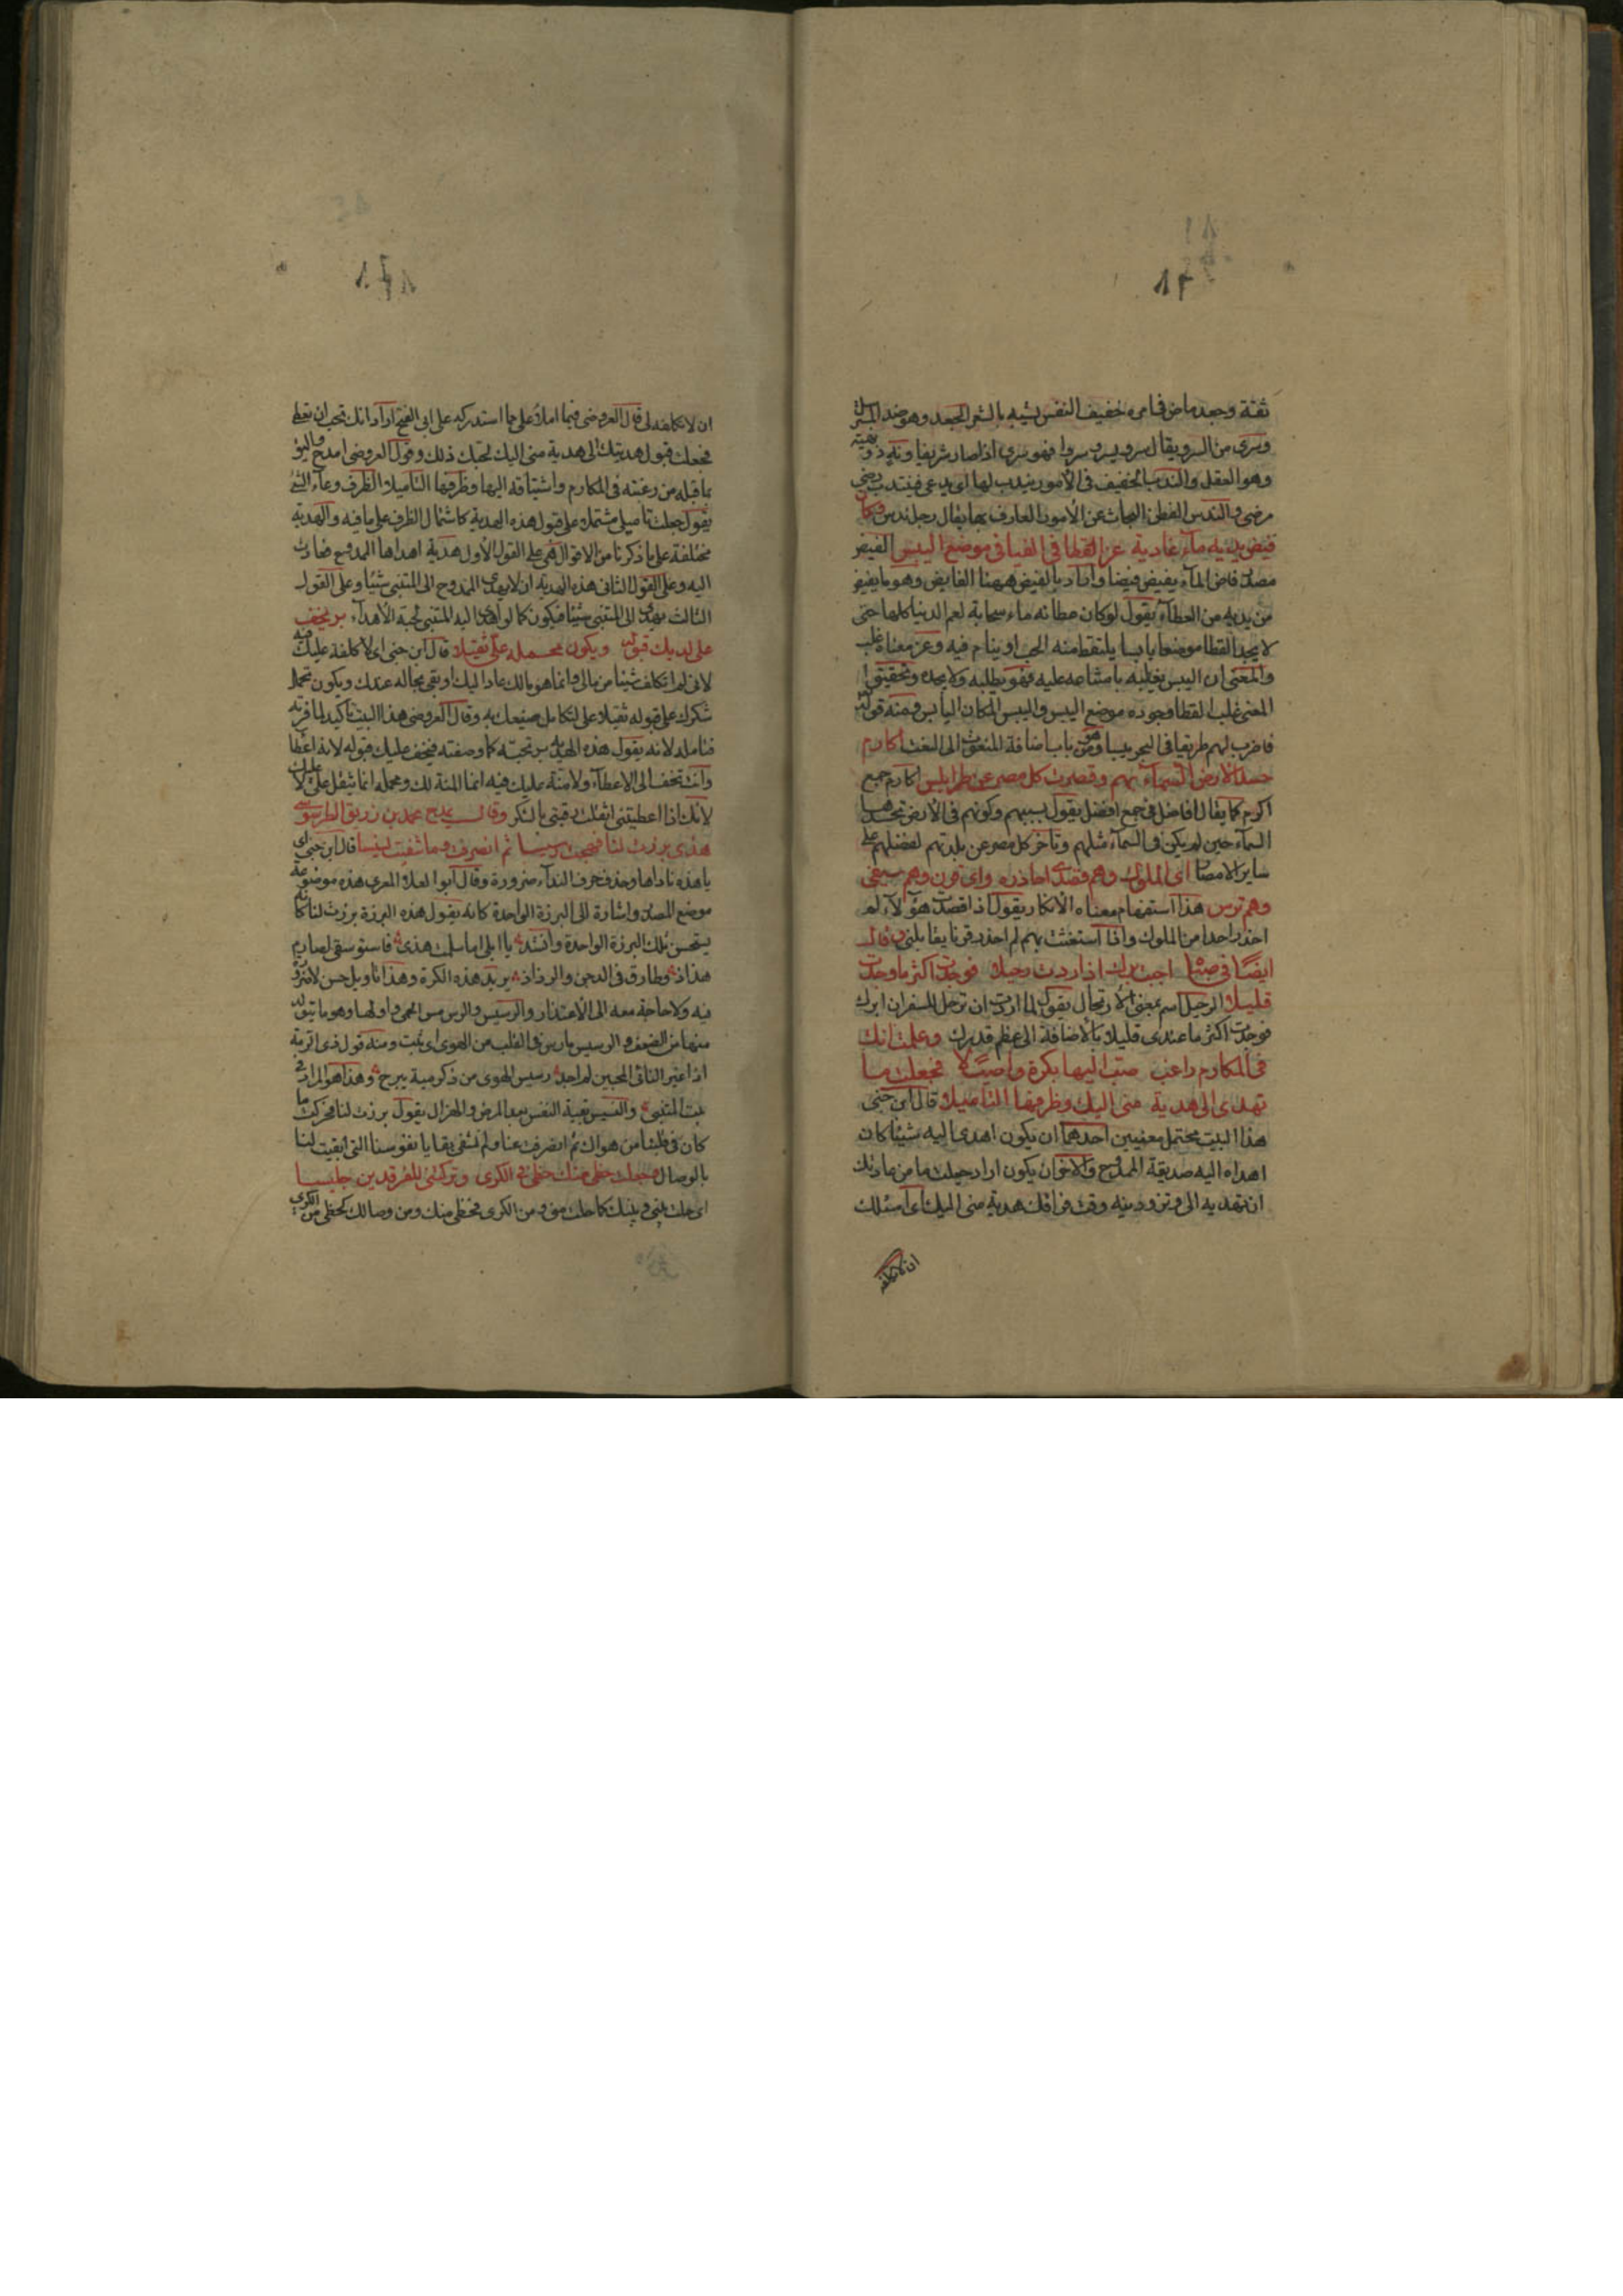 ثقة وجعد ماض فى امره خفيف النفس يشبه بالشعر الجعد وهو ضد المسترسل
وسرى من السرو يقال سرو يسرو سروا فهو سرى اذا صار شريفا ونه ذو نهية
وهو العقل والندب الخفيف فى الأمور يندب لها اى يدعى فينتدب رضى
مرضى والندس الفطن البحاث عن الأمور العارف بها يقال رجل ندس وكان
فيض يديه ماء غادية عز القطا فى الفيافى موضع اليبس الفيض
مصدر فاض الماء يفيض فيضا واراد بالفيض ههنا الفايض وهو ما يفيض
من يديه من العطاء يقول لو كان عطائه ماء سحابة لعم الدنيا كلها حتى
لا يجد القطا موضعا يابسا يلتقط منه الحب او ينام فيه وعز معناه غلب
والمعنى ان اليبس يغلبه بامتناعه عليه فهو يطلبه ولا يجده وتحقيق
المعنى غلب القطا وجوده موضع اليبس واليبس المكان اليابس ومنه قوله
فاضرب لهم طريقا فى البحر يبسا وهو من باب اضافة المنعوت الى النعت اكارم
حسد الأرض السماء بهم وقصرت كل مصر عن طرابلس اكارم جمع
اكرم كما يقال افاضل فى جمع افضل يقول بسببهم وكونهم فى الأرض تحسدها
السماء حين لم يكن فى السماء مثلهم وتأخر كل مصر عن بلدتهم لفضلهم على
ساير الامصار اى الملوك وهم قصدى احاذره واى قرن وهم سيفى
وهم ترسى هذا استفهام معناه الأنكار يقول اذا قصدت هؤلاء لم
احذر احدا من الملوك واذا استغثت بهم لم احذر قرنا يقابلنى وقال
ايضا فى صباه احببت برك اذ اردت رحيلا فوجدت اكثر ما وجدت
قليلا الرحيل اسم بمعنى الأرتحال يقول لما اردت ان ترحل للسفر ان ابرك
فوجدت اكثر ما عندى قليلا بالأضافة الى عظم قدرك وعلمت انك
فى المكارم راغب صب اليها بكرة واصيلا فجعلت ما
تهدى الى هدية منى اليك وظرفها التاميلا قال ابن جنى
هذا البيت يحتمل معنيين احدهما ان يكون اهدى اليه شيئا كان
اهداه اليه صديقه الممدوح والاخر ان يكون اراد جعلت ما من عادتك
ان تهديه الى وتزودنيه وقت فراقك هدية منى اليك اى اسئلك
ان لا تكلفه
ان لا تكلفه لى قال العروضى فيما املاه على مما استدركه على ابى الفتح اراد انك تحب ان تعطى
فجعلت قبول هديتك الى هدية منى اليك لحبك ذلك وقول العروضى امدح واليق
بما قبله من رغبته فى المكارم واشتياقه اليها وظرفها التاميلا الظرف وعاء الشىء
يقول جعلت تاميلى مشتملا على قبول هذه الهدية كاشتمال الظرف على ما فيه والهدية
مختلفة على ما ذكرنا من الاقوال هى على القول الأول هدية اهداها الممدوح فصارت
اليه وعلى القول الثانى هذه الهدية ان لا يهدى الممدوح الى المتنبى شيئا وعلى القول
الثالث يهدى الى المتنبى شيئا فيكون كما لو اهدى اليه المتنبى لحبه الأهداء بر يخف
على يديك قبوله ويكون محمله على ثقيلا قال ابن جنى اى لا كلفة عليك فيه
لانى لم اتكلف شيئا من مالى وانما هو مالك عاد اليك او بقى بحاله عندك ويكون تحمل
شكرك على قبوله ثقيلا على لتكامل صنيعك به وقال العروضى هذا البيت تاكيد لما فسرته
فتامله لانه يقول هذه الهدية بر تحبه كما وصفته فيخف عليك قبوله لانه اعطاء
وانت تخف الى الاعطاء ولا منة عليك فيه انما المنة لك ومحمله انما يثقل على لا عليك
لانك اذا اعطيتنى اثقلت رقبتى بالشكر وقال يمدح محمد بن زريق الطرسوسى
هذى برزت لنا فهجت رسيسا ثم انصرفت وما شفيت نسيسا قال ابن جنى اى
يا هذه ناداها وحذف حرف النداء ضرورة وقال ابو العلا المعرى هذه موضوعة
موضع المصدر واشارة الى البرزة الواحدة كانه يقول هذه البرزة برزت لنا كانه
يستحسن تلك البرزة الواحدة وانشد يا ابلى اما سلمت هذى فاستوسقى لصارم
هذاذ وطارق فى الدجن والرذاذ يريد هذه الكرة وهذا تاويل حسن لا ضرورة
فيه ولا حاجة معه الى الأعتذار والرسيس والرس مس الحمى واولها وهو ما يتولد
منها من الضعف والرسيس ما رس فى القلب من الهوى اى ثبت ومنه قول ذى الرمة
اذا غير النائى المحبين لم اجد رسيس الهوى من ذكر مية يبرح وهذا هو المراد فى
بيت المتنبى والنسيس بقية النفس بعد المرض والهزال يقول برزت لنا فحركت ما
كان فى قلبنا من هواك ثم انصرفت عنا ولم تشفى بقايا نفوسنا التى ابقيت لنا
بالوصال وجعلت حظى منك حظى فى الكرى وتركتنى للفرقدين جليسا
اى حلت بينى وبينك كما حلت بينى وبين الكرى فحظى منك ومن وصالك كحظى من الكرى